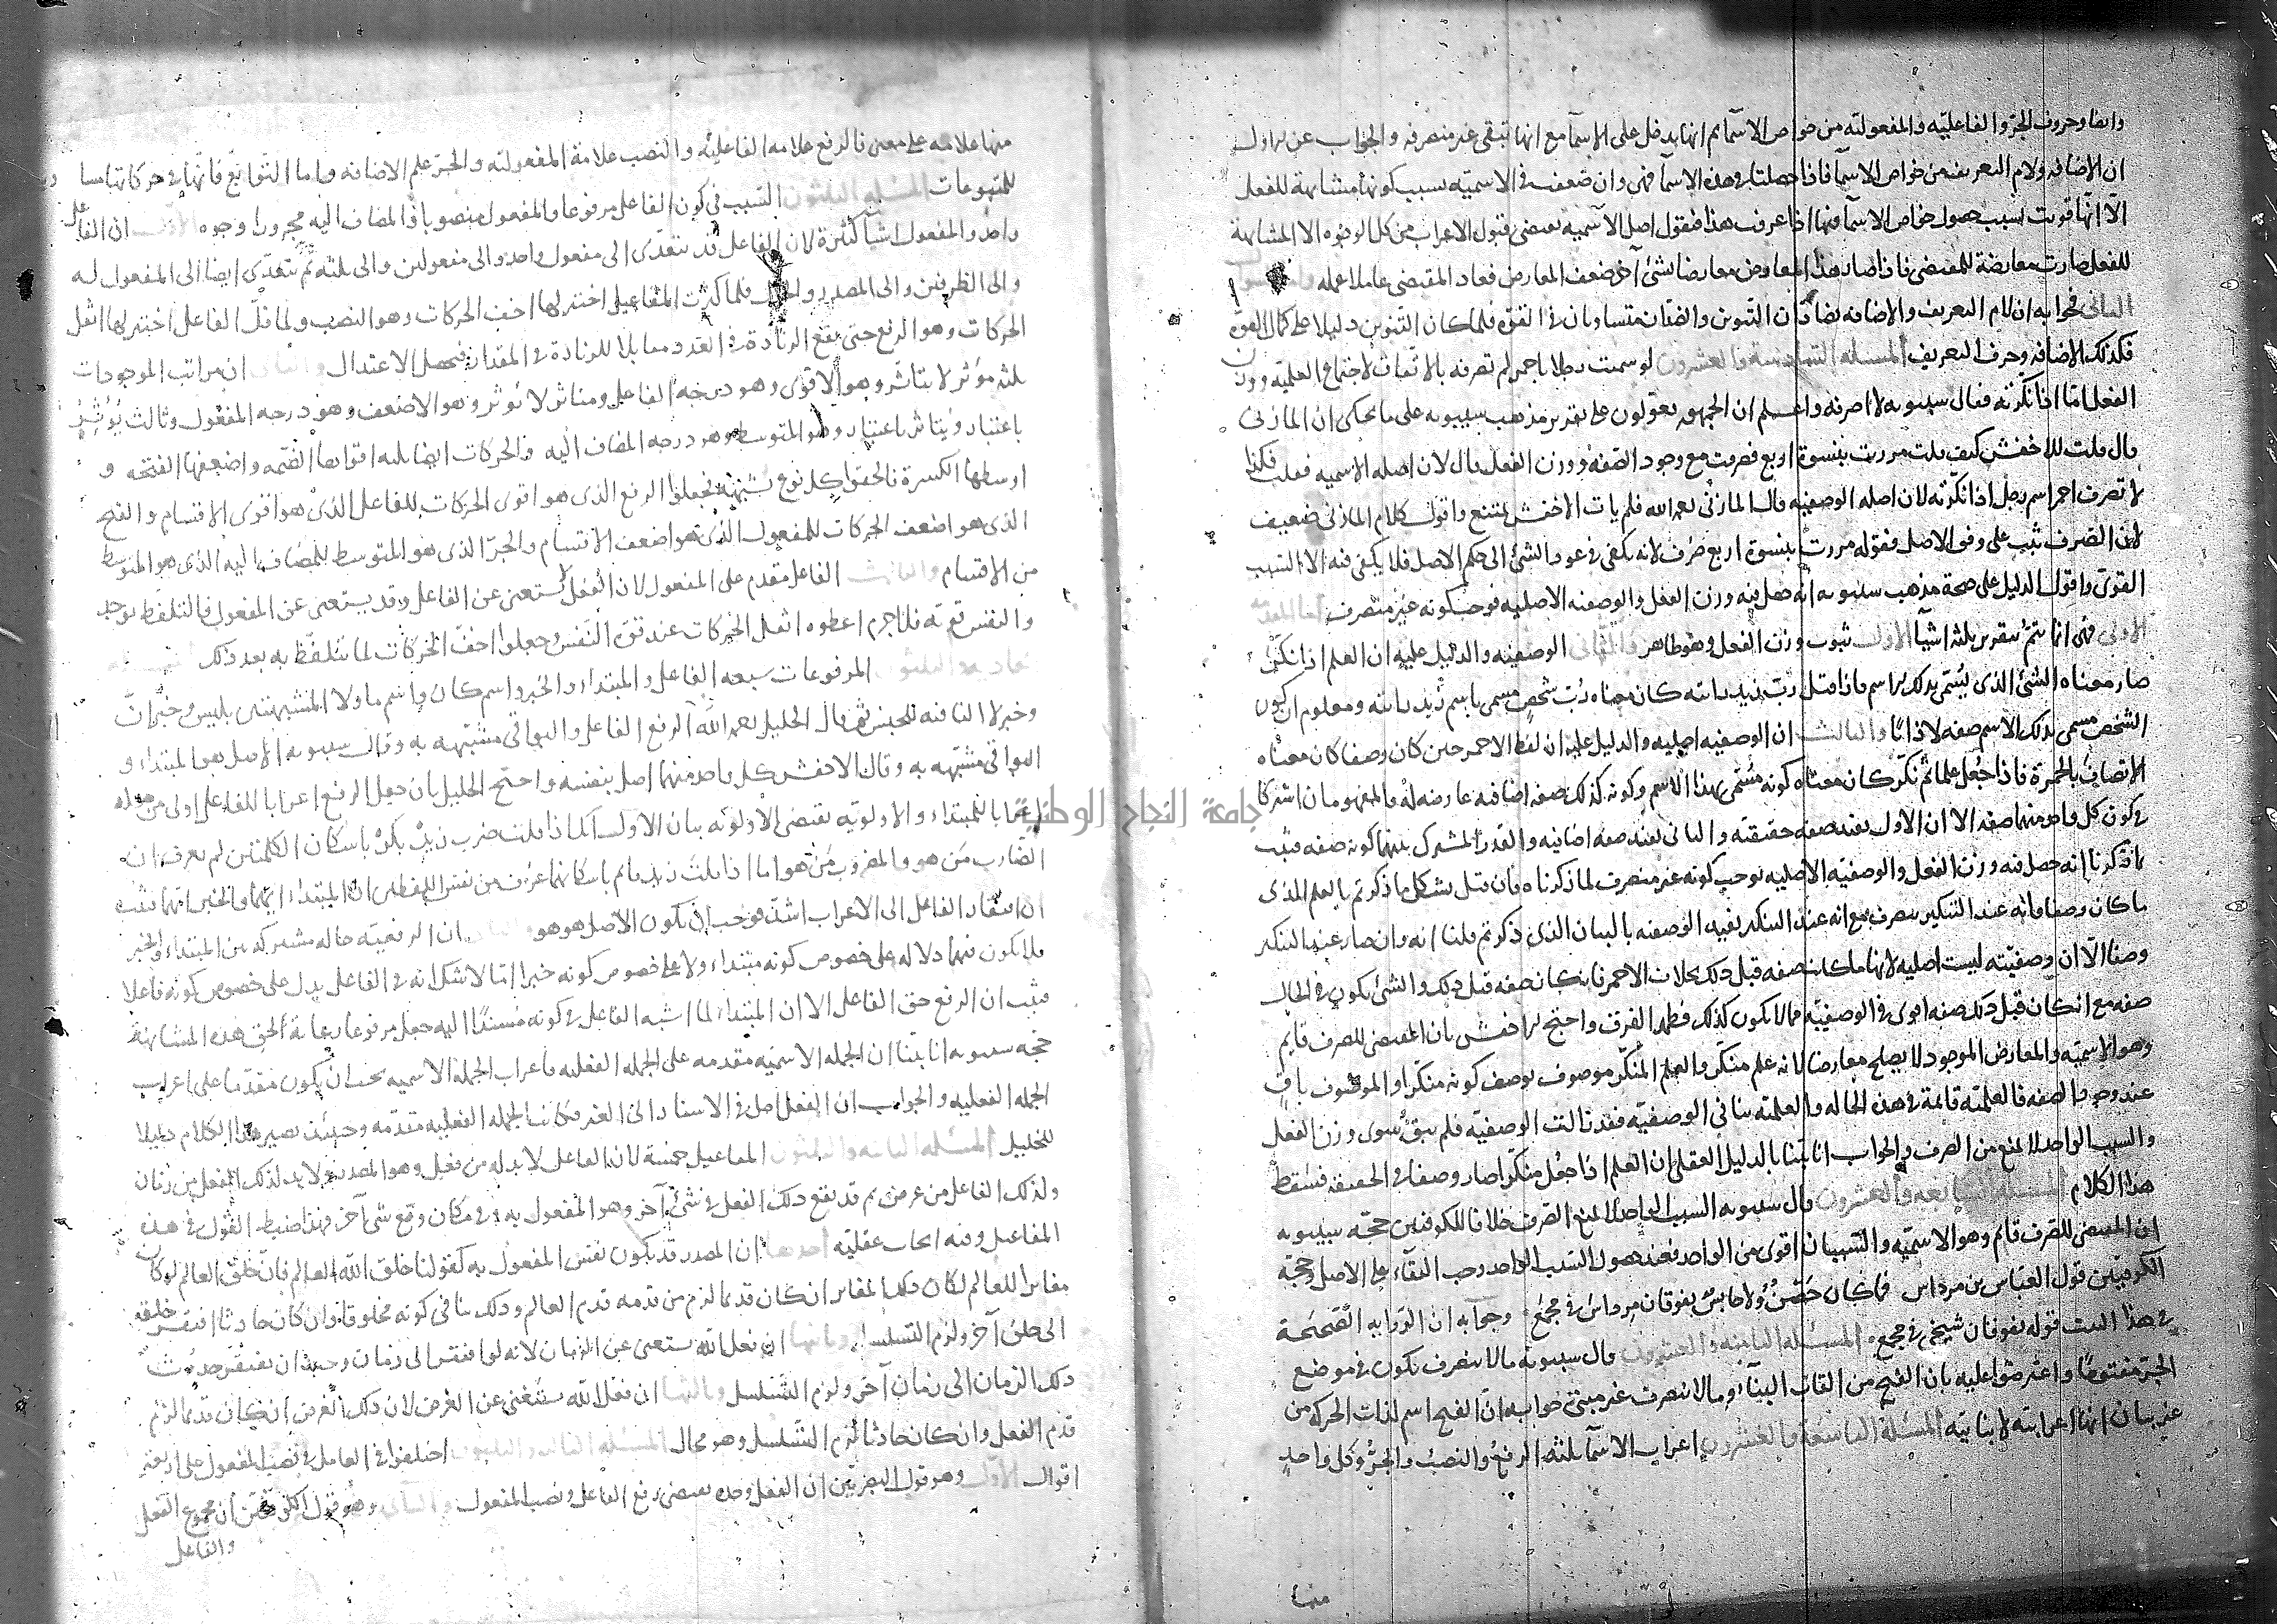 وايضا وحروف الجر والفاعلية والمفعولية من خواص الاسما ثم انها يدخل على الاسما مع انها تبقى غير منصرفه والجواب عن الاول
ان الاضافه ولام التعريف من خواص الاسما فاذا حصلتا في هذه الاسما فهى وان ضعفت في الاسميه بسبب كونها مشابهة للفعل
الا انها قويت بسبب حصول خواص الاسما فيها اذا عرف هذا فنقول اصل الاسميه يقتضى قبول الاعراب من كل الوجوه الا المشابهة
للفعل صارت معارضة للمقتضى فاذا صار هذا المعارض معارضا بشئ آخر ضعف المعارض فعاد المقتضى عاملا عمله واما السؤال
الثانى فجوابه ان لام التعريف والاضافه يضادان التنوين والضدان متساويان في القوة فلما كان التنوين دليلا على كمال القوة
فكذلك الاضافه وحرف التعريف المسئله السادسة والعشرون لو سميت رجلا باحمر لم تصرفه بالاتفاق لاجتماع العلميه ووزن
الفعل اما اذا نكرته فقال سيبويه لا اصرفه واعلم ان الجمهور يعولون على تقرير مذهب سيبويه على ما يحكى ان المازنى
قال قلت للاخفش كيف قلت مررت بنسوة اربع فصرفت مع وجود الصفة ووزن الفعل قال لان اصله الاسميه فقلت فكذا
لا تصرف احمر اسم رجل اذا نكرته لان اصله الوصفيه قال المازنى رحمه الله فلم يات الاخفش بمقنع واقول كلام المازنى ضعيف
لان الصرف ثبت على وفق الاصل فقوله مررت بنسوة اربع صرف لانه يكفى في عود الشئ الى حكم الاصل فلا يكفى فيه الا السبب
القوى واقول الدليل على صحة مذهب سيبويه انه حصل فيه وزن الفعل والوصفيه الاصليه فوجب كونه غير منصرف اما المقدمه
الاولى فهى انما تتم بتقرير ثلثه اشيا الاول ثبوت وزن الفعل وهو ظاهر والثانى الوصفيه والدليل عليه ان العلم اذا نكر
صار معناه الشئ الذى يسمى بذلك الاسم فاذا قيل رب زيد رايته كان معناه رب شخص مسمى باسم زيد رايته ومعلوم ان كون
الشخص مسمى بذلك الاسم صفه لا ذاتا والثالث ان الوصفيه اصليه والدليل عليه ان لفظ الاحمر حين كان وصفا كان معناه
الاتصاف بالحمرة فاذا جعل علما ثم نكر كان معناه كونه مسمى بهذا الاسم وكونه كذلك صفه اضافيه عارضه له فالمفهومان اشتركا
في كون كل واحد منهما صفه الا ان الاول يفيد صفه حقيقيه والثانى يفيد صفه اضافيه والقدر المشترك بينهما كونه صفه فثبت
بما ذكرنا انه حصل فيه وزن الفعل والوصفيه الاصليه فوجب كونه غير منصرف لما ذكرناه فان قيل يشكل ما ذكرتم بالعلم الذى
ما كان وصفا فانه عند التنكير ينصرف مع انه عند التنكير يفيد الوصفيه بالبيان الذى ذكرتم قلنا انه وان صار عند التنكير
وصفا الا ان وصفيته ليست اصليه لانها ما كانت صفه قبل ذلك بخلاف الاحمر فانه كان صفه قبل ذلك والشئ يكون في الحال
صفه مع انه كان قبل ذلك صفه اقوى في الوصفيه مما لا يكون كذلك فظهر الفرق واحتج الاخفش بان المقتضى للصرف قايم
وهو الاسميه والمعارض الموجود لا يصلح معارضا لانه علم منكر والعلم المنكر موصوف بوصف كونه منكرا والموصوف باق
عند وجود الصفه فالعلميه قائمة في هذه الحاله والعلميه تنافى الوصفيه فقد زالت الوصفيه فلم يبق سوى وزن الفعل
والسبب الواحد لا يمنع من الصرف والجواب انا بينا بالدليل العقلى ان العلم اذا جعل منكرا صار وصفا في الحقيقه فسقط
هذا الكلام المسئله السابعه والعشرون قال سيبويه السبب الواحد لا يمنع الصرف خلافا للكوفيين حجة سيبويه
ان المقتضى للصرف قايم وهو الاسميه والسببان اقوى من الواحد فعند حصول السبب الواحد وجب البقاء على الاصل وحجة
الكوفيين قول العباس بن مرداس فما كان حصن ولا حابس يفوقان مرداس في مجمع وجوابه ان الرواية الصحيحة
في هذا البيت قوله يفوقان شيخى في مجمع المسئله الثامنه والعشرون قال سيبويه ما لا ينصرف يكون في موضع
الجر مفتوحا واعترضوا عليه بان الفتح من القاب البناء وما لا ينصرف غير مبنى جوابه ان الفتح اسم لذات الحركه من
غير بيان انها اعرابيه او بنائيه المسئلة التاسعة والعشرون اعراب الاسما ثلثه الرفع والنصب والجر وكل واحد
منها
منها علامه على معنى فالرفع علامه الفاعليه والنصب علامة المفعوليه والجر علم الاضافه واما التوابع فانها في حركاتها مساوية
للمتبوعات المسئله الثلثون السبب في كون الفاعل مرفوعا والمفعول منصوبا والمضاف اليه مجرورا وجوه الاول ان الفاعل
واحد والمفعول اشيا كثيرة لان الفاعل قد يتعدى الى مفعول واحد والى مفعولين والى ثلثه ثم يتعدى ايضا الى المفعول له
والى الظرفين والى المصدر والحال فلما كثرت المفاعيل اختير لها اخف الحركات وهو النصب ولما قل الفاعل اختير لها اثقل
الحركات وهو الرفع حتى يقع الزيادة في العدد مقابلا للزيادة في المقدار فيحصل الاعتدال والثانى ان مراتب الموجودات
ثلثه مؤثر لا يتاثر وهو الاقوى وهو درجه الفاعل ومتاثر لا يؤثر وهو الاضعف وهو درجه المفعول وثالث يؤثر
باعتبار ويتاثر باعتبار وهو المتوسط وهو درجه المضاف اليه والحركات ايضا ثلثه اقواها الضمه واضعفها الفتحه و
اوسطها الكسرة فالحقوا كل نوع بشبيهه فجعلوا الرفع الذى هو اقوى الحركات للفاعل الذى هو اقوى الاقسام والفتح
الذى هو اضعف الحركات للمفعول الذى هو اضعف الاقسام والجر الذى هو المتوسط للمضاف اليه الذى هو المتوسط
من الاقسام والثالث الفاعل مقدم على المفعول لان الفعل لا يستغنى عن الفاعل وقد يستغنى عن المفعول فالتلفظ يوجد
والنفس قويه فلا جرم اعطوه اثقل الحركات عند قوة النفس وجعلوا اخف الحركات لما يتلفظ به بعد ذلك
المرفوعات سبعه الفاعل والمبتداء والخبر واسم كان واسم ما ولا المشبهتين بليس وخبر ان
وخبر لا النافيه للجنس ثم قال الخليل رحمه الله الرفع الفاعل والبواقى مشبهه به وقال سيبويه الاصل هو المبتداء و
البواقى مشبهه به وقال الاخفش كل واحد منهما اصل بنفسه واحتج الخليل بان جعل الرفع اعرابا للفاعل اولى من جعله
اعرابا للمبتداء والاولويه تقتضى الاوليه بيان الاول انك اذا قلت ضرب زيد بكر باسكان الكلمتين لم يعرف ان
الضارب من هو والمضروب من هو اما اذا قلت زيد قايم باسكانهما عرف من نفس اللفظين ان المبتداء ايهما والخبر ايهما فثبت
ان افتقار الفاعل الى الاعراب اشد فوجب ان يكون الاصل هو هو ان الرفعيه حاله مشتركه بين المبتداء والخبر
فلا يكون فيها دلاله على خصوص كونه مبتداء ولا على خصوص كونه خبرا اما لا شك انه في الفاعل يدل على خصوص كونه فاعلا
فثبت ان الرفع حق الفاعل الا ان المبتداء لما اشبه الفاعل في كونه مسندا اليه جعل مرفوعا رعاية لحق هذه المشابهة
حجة سيبويه انا بينا ان الجمله الاسميه مقدمه على الجمله الفعليه فاعراب الجمله الاسميه يجب ان يكون مقدما على اعراب
الجمله الفعليه والجواب ان الفعل اصل في الاسناد الى الغير فكانت الجمله الفعليه متقدمه وحينئذ يصير هذا الكلام دليلا
للخليل المسئله الثانيه والثلثون المفاعيل خمسة لان الفاعل لا بد له من فعل وهو المصدر ولا بد لذلك الفعل من زمان
ولذلك الفاعل من غرض ثم قد يقع ذلك الفعل في شئ آخر وهو المفعول به وفي مكان ومع شئ آخر فهذا ضبط القول في هذه
المفاعيل وفيه ابحاث عقليه احدها ان المصدر قد يكون نفس المفعول به كقولنا خلق الله العالم فان خلق العالم لو كان
مغايرا للعالم لكان ذلك المغاير ان كان قديما لزم من قدمه قدم العالم وذلك ينافى كونه مخلوقا وان كان حادثا افتقر خلقه
الى خلق آخر ولزم التسلسل وثانيها ان فعل الله يستغنى عن الزمان لانه لو افتقر الى زمان وجب ان يفتقر حدوث
ذلك الزمان الى زمان آخر ولزم التسلسل وثالثها ان فعل الله يستغنى عن الغرض لان ذلك الغرض ان كان قديما لزم
قدم الفعل وان كان حادثا لزم التسلسل وهو محال المسئله الثالثه والثلثون اختلفوا في العامل في نصب المفعول على اربعة
اقوال الاول وهو قول البصريين ان الفعل وحده يقتضى رفع الفاعل ونصب المفعول والثانى وهو قول الكوفيين ان مجموع الفعل
والفاعل
جامعة النجاح الوطنية